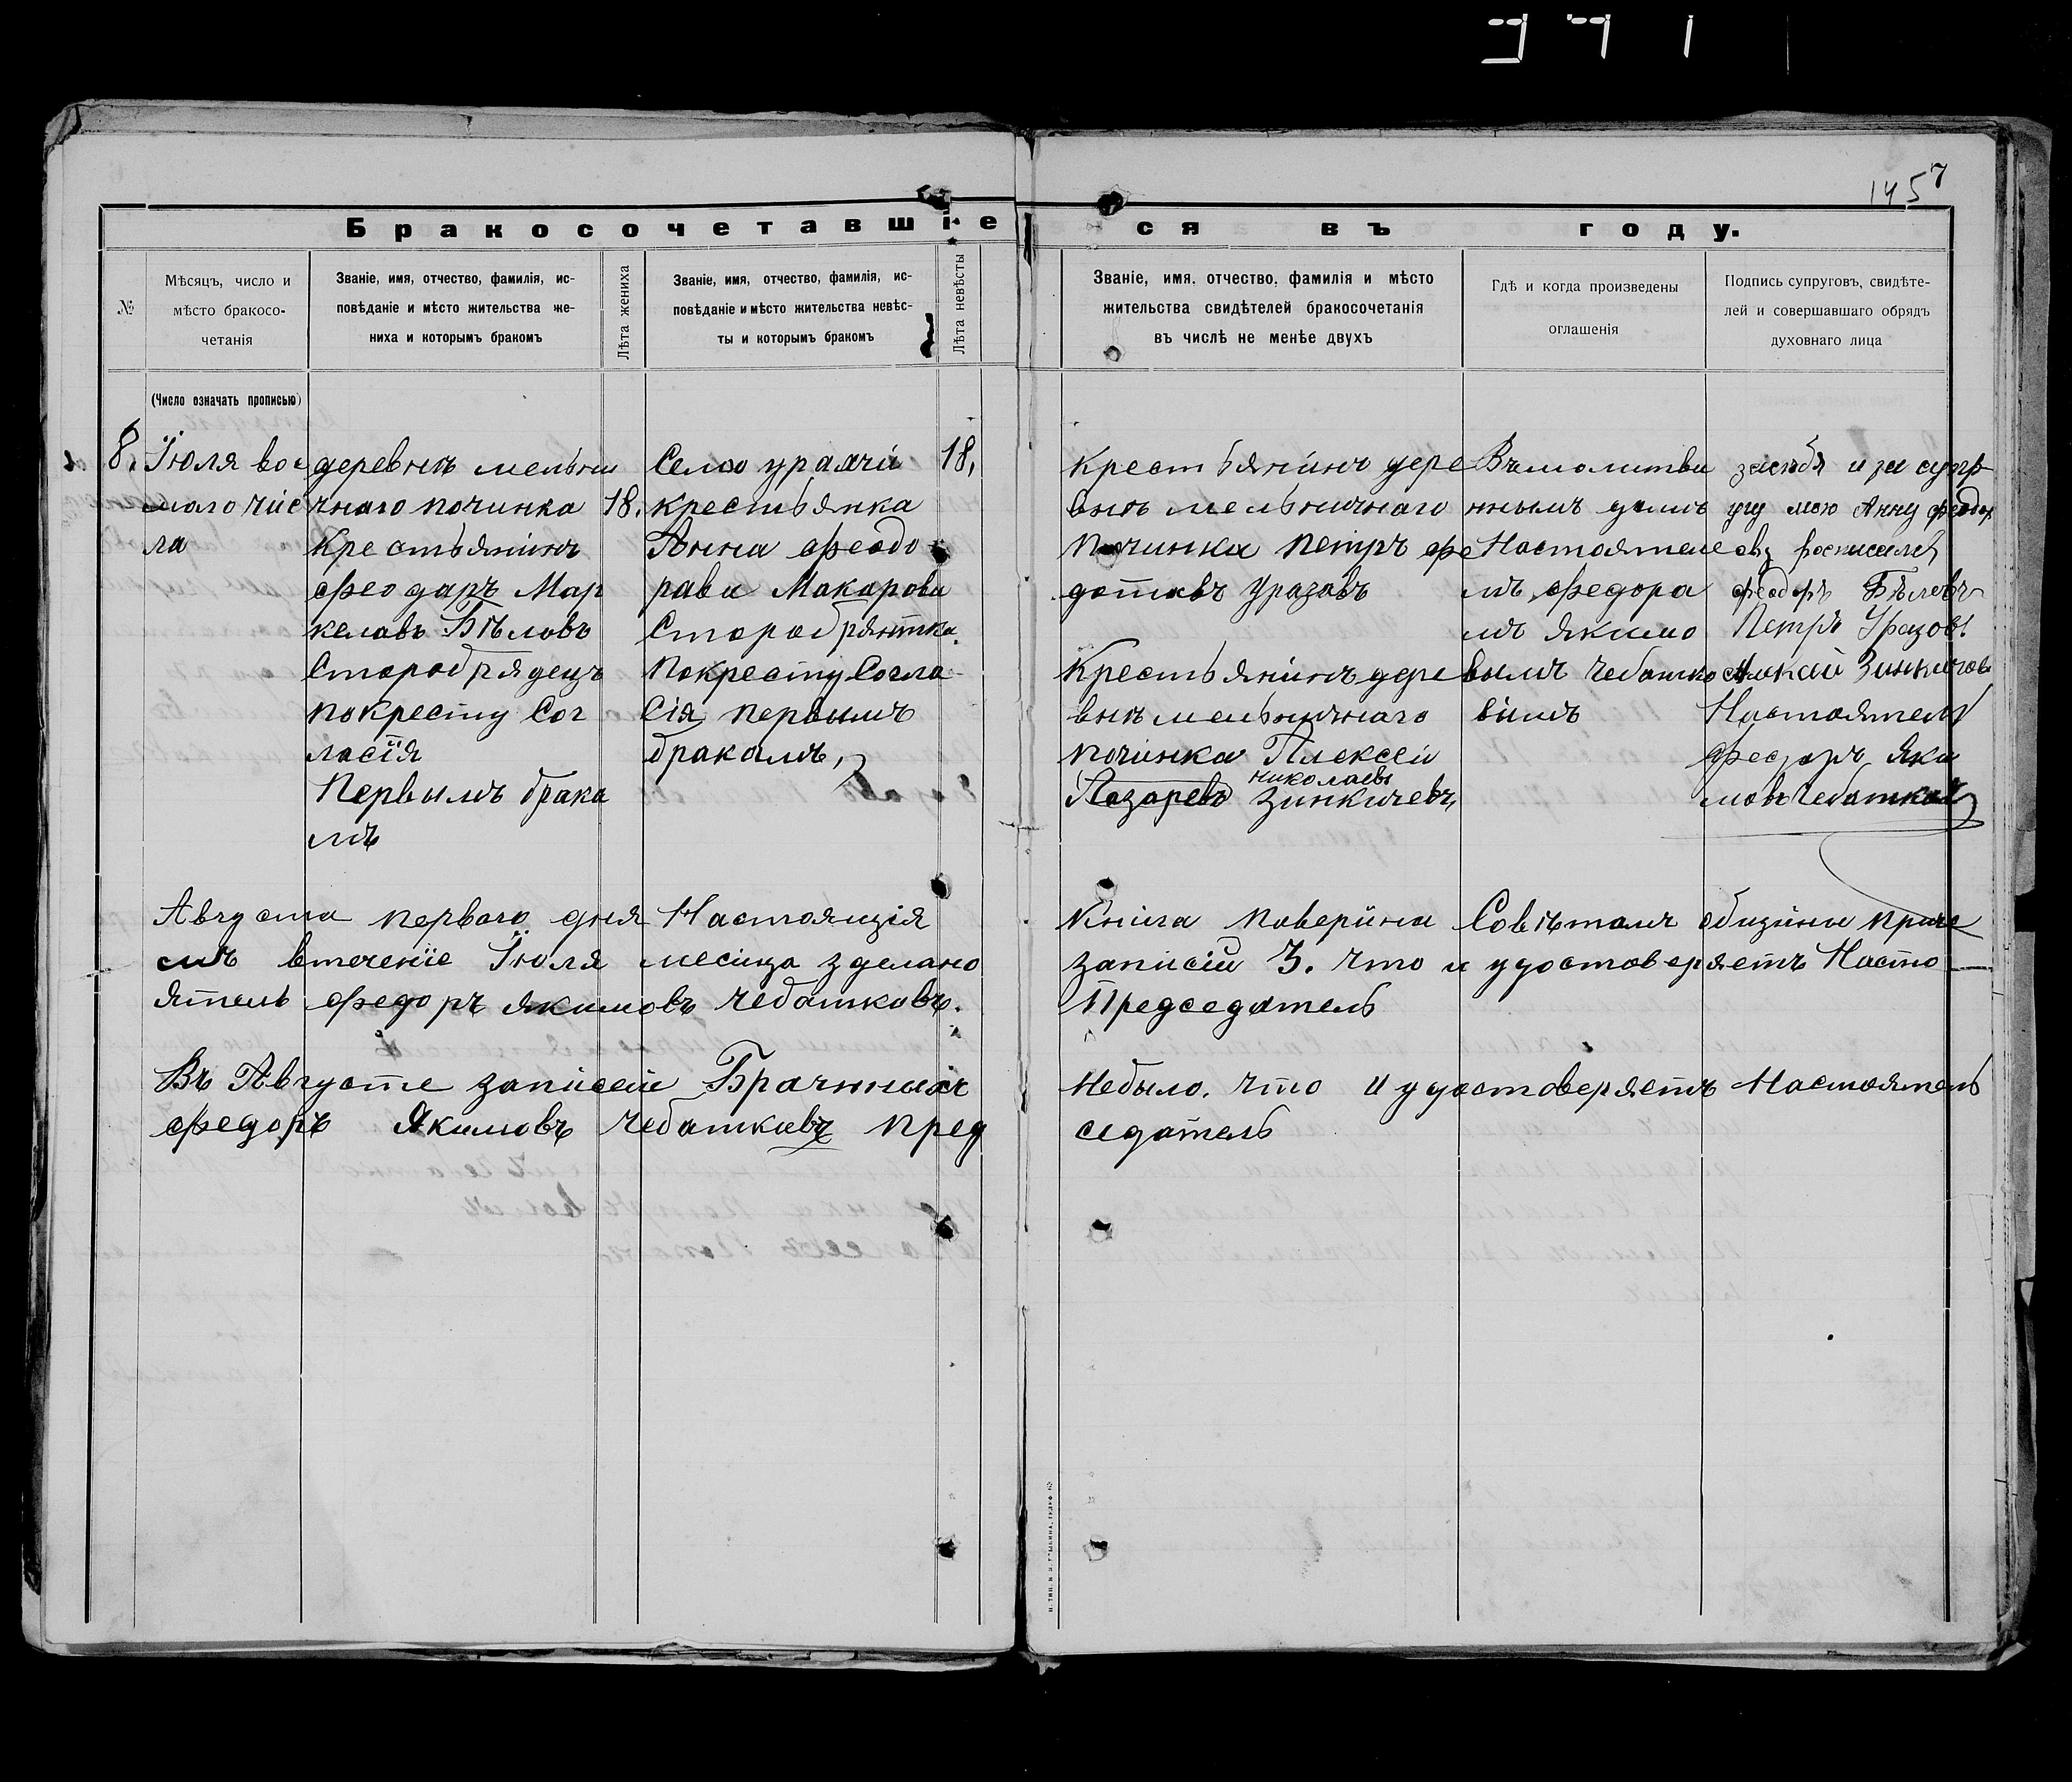 1457
Бракосочетавшіеся въ году.
№
Мѣсяцъ, число и
мѣсто бракосо-
четанія
(Число означать прописью)
Званіе, имя, отчество, фамилія, ис-
повѣданіе и мѣсто жительства же-
ниха и которымъ бракомъ
Лѣта жениха
Званіе, имя, отчество, фамилія, ис-
повѣданіе и мѣсто жительства невѣс-
ты и которымъ бракомъ
Лѣта невѣсты
Званіе, имя, отчество, фамилія и мѣсто
жительства свидѣтелей бракосочетанія
въ числѣ не менѣе двухъ
Гдѣ и когда произведены
оглашенія
Подпись супруговъ, свидѣте-
лей и совершавшаго обрядъ
духовнаго лица
8.
Іюля вос
маго чис
ла
деревнѣ мельни
чнаго починка
Крестьянінъ
Феодаръ Мар
келавъ Бѣловъ
Старобрядецъ
покресту Сог
ласїя
Первымъ брака
мъ
18.
Село урачи
крестьянка
Анна Феодо
рава Макарова
Старобрянтка
Покресту Согла
Сія первымъ
бракамъ,
18,
Крестьянінъ дере
внѣ мельничнаго
Починка Петръ Фе
дотавъ Уразавъ
Крестьянінъ дере
внѣ мельничнаго
почінка Алексей
николаевъ
Лазаревъ Зинкичевъ,
Въ молитви
ннымъ домѣ
Настоятеле
мъ Федора
мъ Якимо
вымъ Чебатко
вімъ
засебя и за супр
угу мою Анну Феодор
ову росписался
Феодоръ Бѣловъ
Петръ Уразовъ
Алексѣй Зинкичовъ
Настоятель
Федоръ Яки
мовъ Чебатковъ
Августа первого дня Настоящія Книга поверина Совѣтамъ общины приче
мъ втеченіе Їюля месіца зделано записій 3. что и удостоверяетъ Насто
ятель Федоръ Якимовъ Чебатковъ. Председатель
Въ Августе записей Брачнныхъ Небыло. что и удостоверяетъ Настоятель
Федоръ Якимовъ Чебатковъ Пред седатель